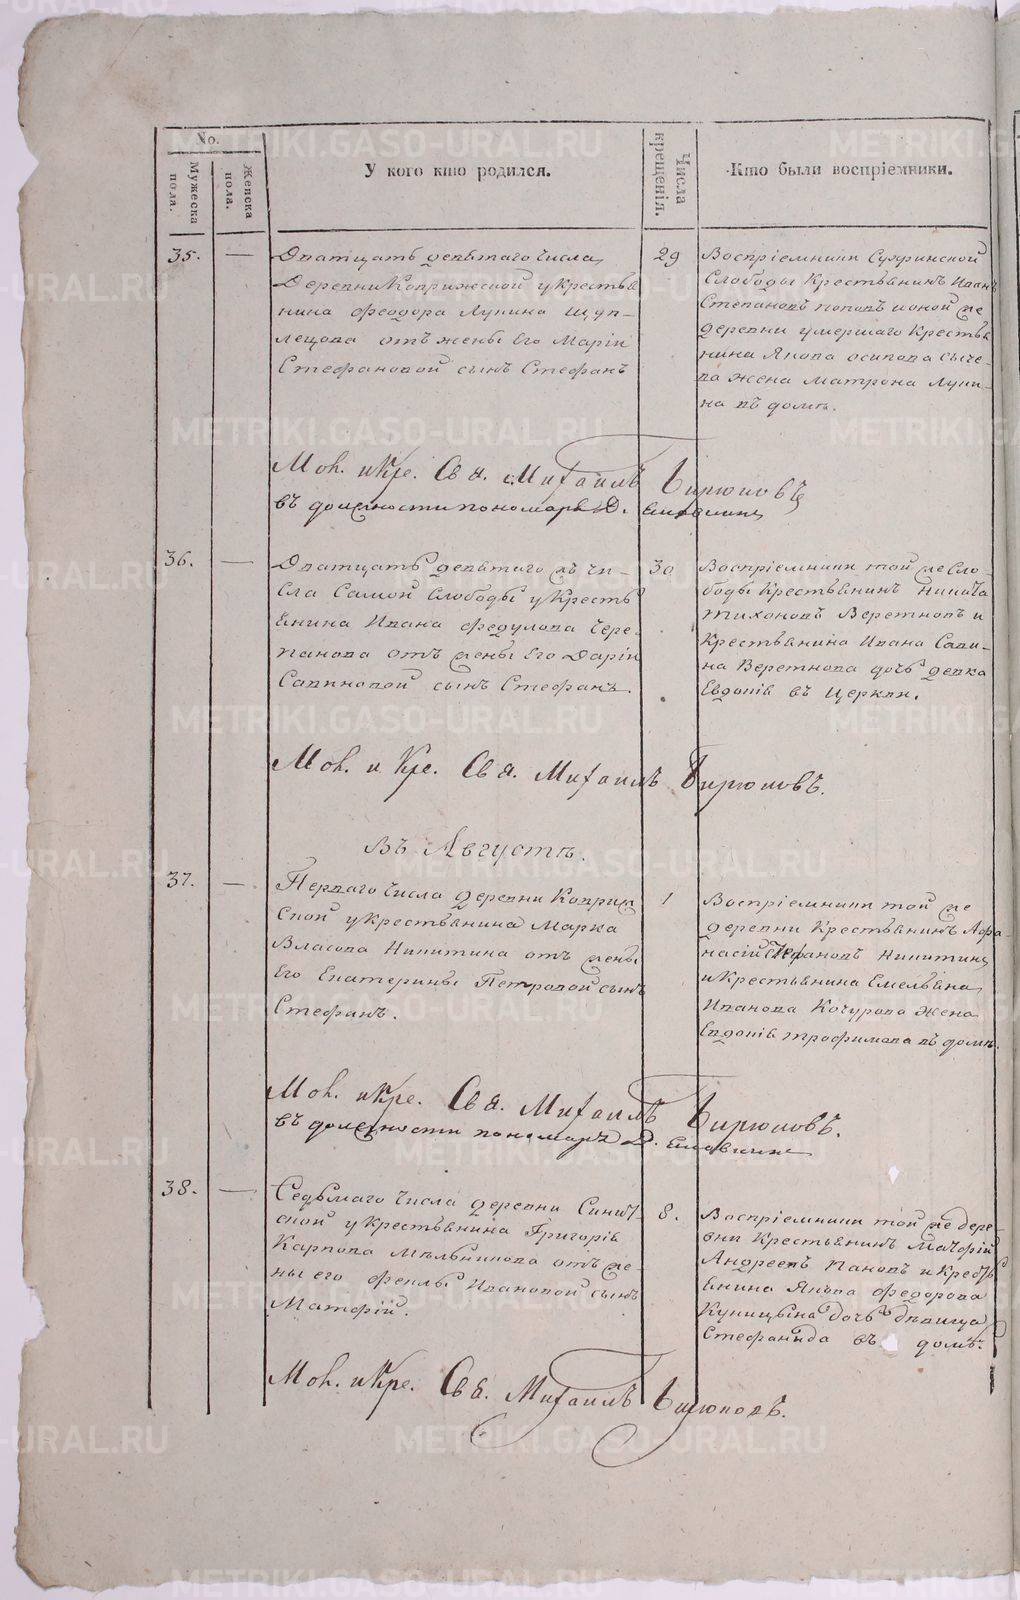 No.
Мужеска пола.
Женска пола.
У кого кто родился.
Числа крещенія.
Кто были воспріемники.
35. —
Дватцать девятаго числа
Деревни Коврижской у крестья
нина Феодора Лукина Щуп-
лецова отъ жены Его Маріи
Стефановой сынъ Стефанъ
29
Воспріемники Суфринской
Слободы Крестьянинъ Иванъ
Степановъ поповъ и оной же
деревни умершаго Крестья
нина Якова осипова сыче
ва жена матрона Луки-
на въ домѣ.
Мол. и Кре. Свя. Михаилъ Бирюковъ
въ должности пономаря Д.
36. —
Дватцать девятаго жъ чи-
сла Самой Слободы у Кресть
янина Ивана Федулова Чере-
панова отъ жены Его Даріи
Савиновой сынъ Стефанъ.
30
Воспріемники той же Сло-
боды Крестьянинъ Никита
тихоновъ Веретновъ и
Крестьянина Ивана Сави-
на Веретнова дочь девка
Евдокія въ Церкви.
Мол. и Кре. Свя. Михаилъ Бирюковъ.
Въ Августѣ.
37. —
Перваго числа деревни Коврижс
ской у Крестьянина Марка
Власова Никитина отъ жены
Его Екатерины Петровой сынъ
Стефанъ.
1
Воспріемники той же
деревни Крестьянинъ Афа
насій Стефановъ Никитинъ
и Крестьянина Емельяна
Иванова Кочурова Жена
Евдокія трофимова въ домѣ.
Мол. и Кре. Свя. Михаилъ Бирюковъ.
въ должности пономаря Д.
38. —
Седьмаго числа деревни
ской у Крестьянина Григорія
Карпова Мѣльникова отъ же
ны его Феклы Ивановой сынъ
Матфій.
8.
Воспріемники той же дере
вни Крестьянинъ Матфій
Андреевъ Пановъ и Кресть
янина Якова Федорова
Куницына дочь дѣвица
Стефанида въ домѣ.
Мол. и Кре. Свя. Михаилъ Бирюковъ.
METRIKI.GASO-URAL.RU